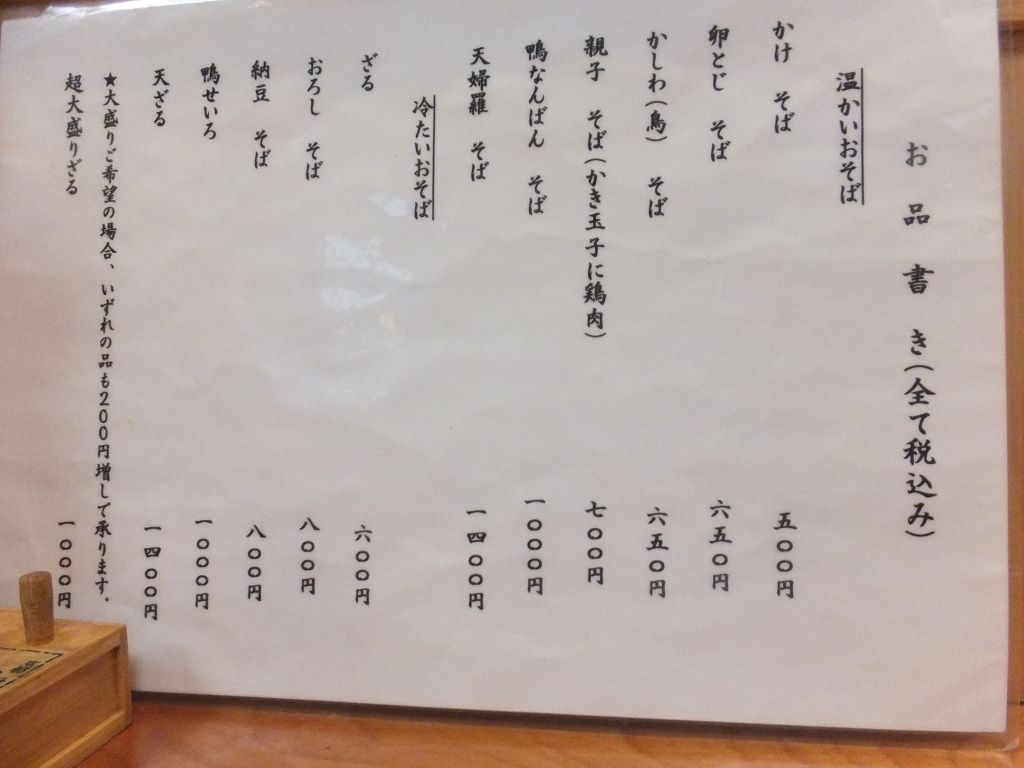 お品書き(全て税込み)
温かいおそば
かけ そば 五〇〇円
卵とじ そば 六五〇円
かしわ(鳥) そば 六五〇円
親子 そば(かき玉子に鶏肉) 七〇〇円
鴨なんばん そば 一〇〇〇円
天婦羅 そば 一四〇〇円
冷たいおそば
ざる 六〇〇円
おろし そば 八〇〇円
納豆 そば 八〇〇円
鴨せいろ 一〇〇〇円
天ざる 一四〇〇円
★大盛りご希望の場合、いずれの品も200円増しで承ります。
超大盛りざる 一〇〇〇円